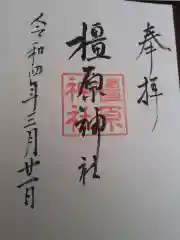 奉拝
橿原神社
橿原神社
令和四年三月廿一日